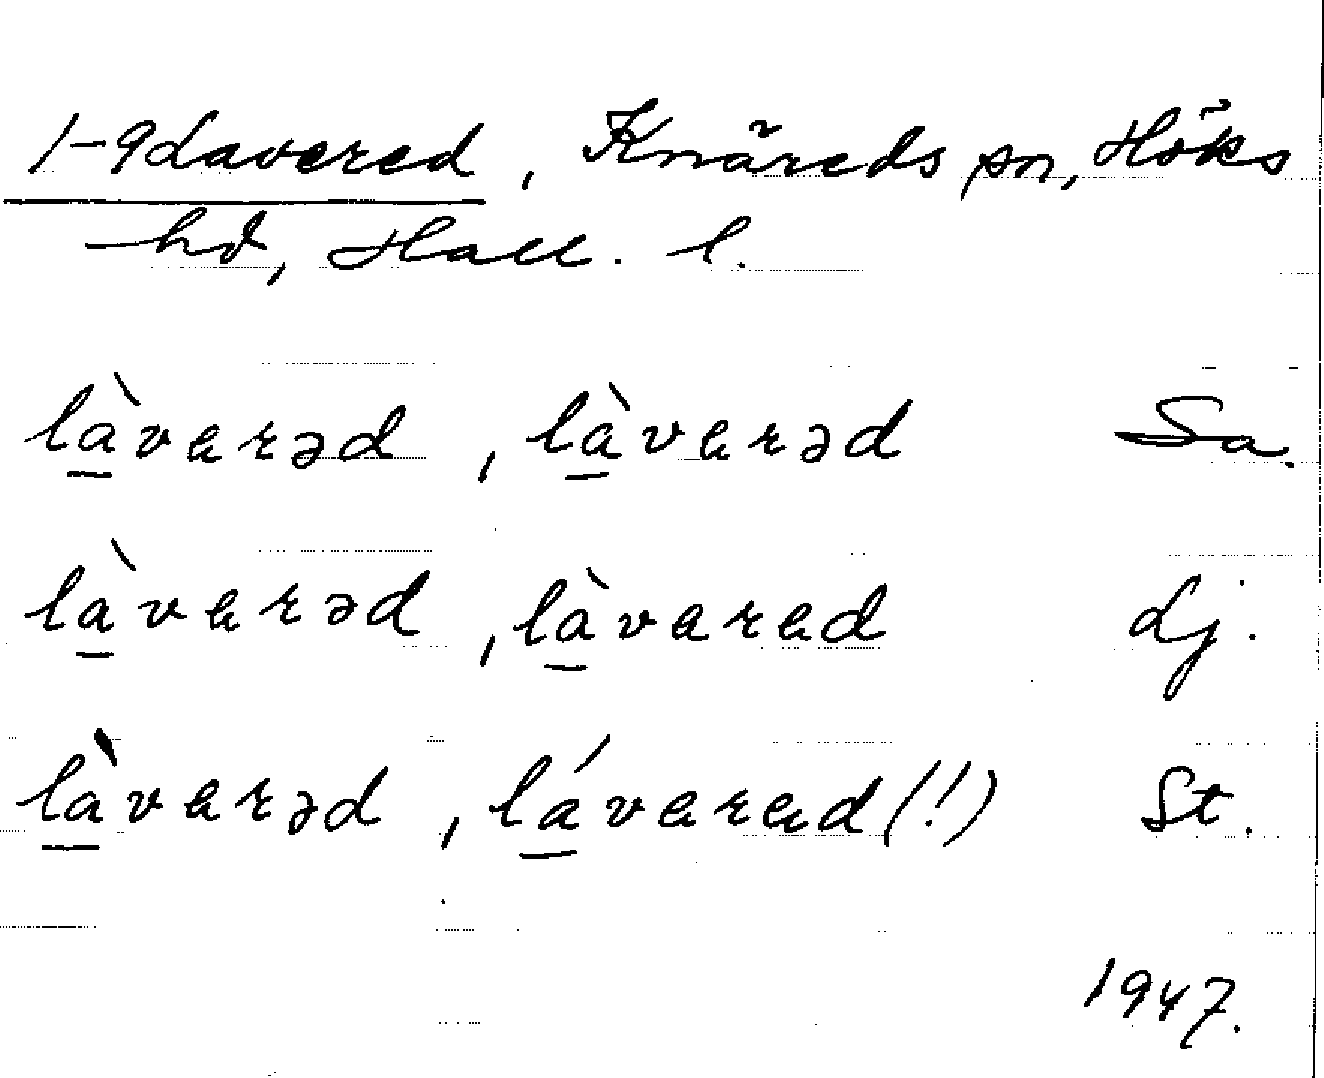 1-9 Lavered, Knäreds sn, Höks
hd, Hall. l.
là̱verəd, là̱verəd Sa.
là̱verəd, là̱vered Lj.
là̱verəd, lá̱vered (!) St.
1947.